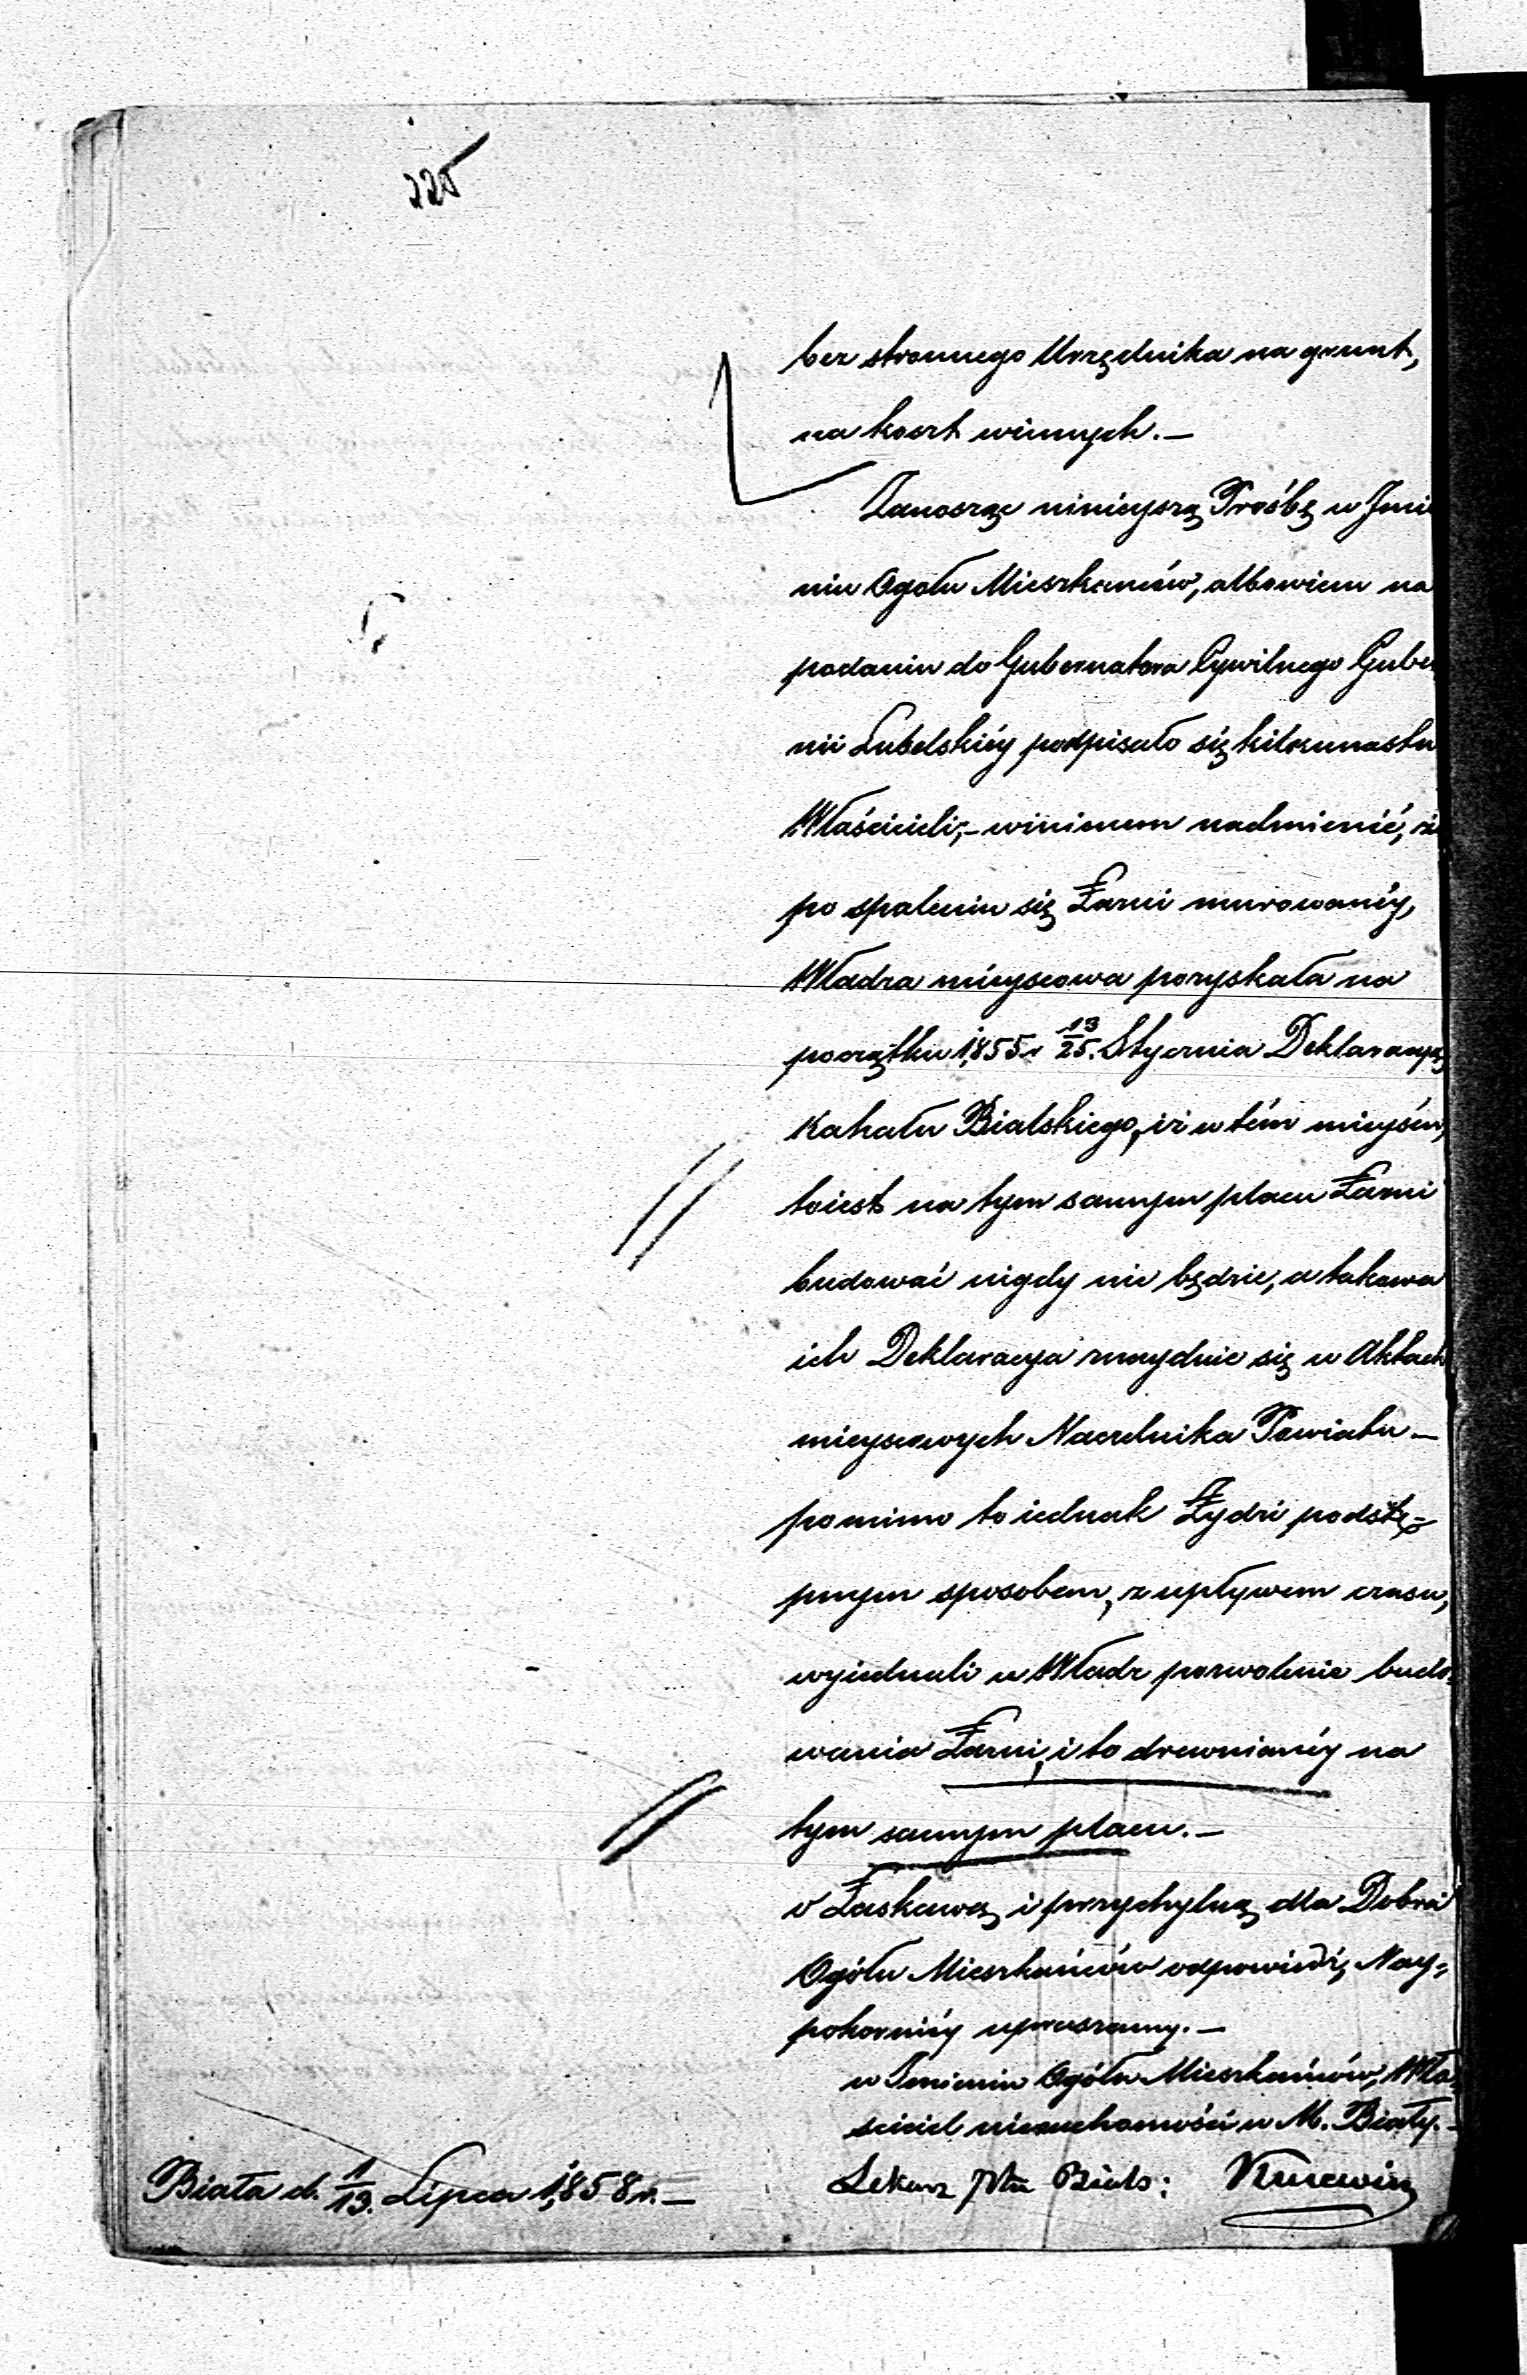 225
bez stronnego Urzędnika na grunt,
na koszt winnych.—
Zanosząc niniejszą Prośbę w Jmie
niu Ogołu Mieszkancow, albowiem na
podaniu do Gubernatora Cywilnego Guber
nii Lubelskiéy podpisało się kilkunastu
Właścicieli;— winienem nadmienić, że
po spaleniu się Łazni murowanéy,
Władza mieyscowa pozyskała na
początku 1,855 r 13/25. Stycznia Deklaracyą
Kahału Bialskiego, iż w tém mieyscu,
toiest na tym samym placu Łazni
budować nigdy nie będzie, a takowa
ich Deklaracya znaydnie się w Aktach
mieyscowych Naczelnika Powiatu —
pomimo to iednak Żydzi podstę=
pnym sposobem, z upływem czasu,
wyiednali u Władz pozwolenie budo=
wania Łazni, i to drewnianéy na
tym samym placu.—
O Łaskawą i przychylną dla Dobra
Ogółu Mieszkańców odpowiedź, Nay=
pokorniéy upraszamy.—
w Imieniu Ogółu Mieszkańców, Wła=
sciciel nieruchomości w M. Białéy.—
Biała d. 1/13. Lipca 1,858 r.—
Lekarz Ptu Bials: